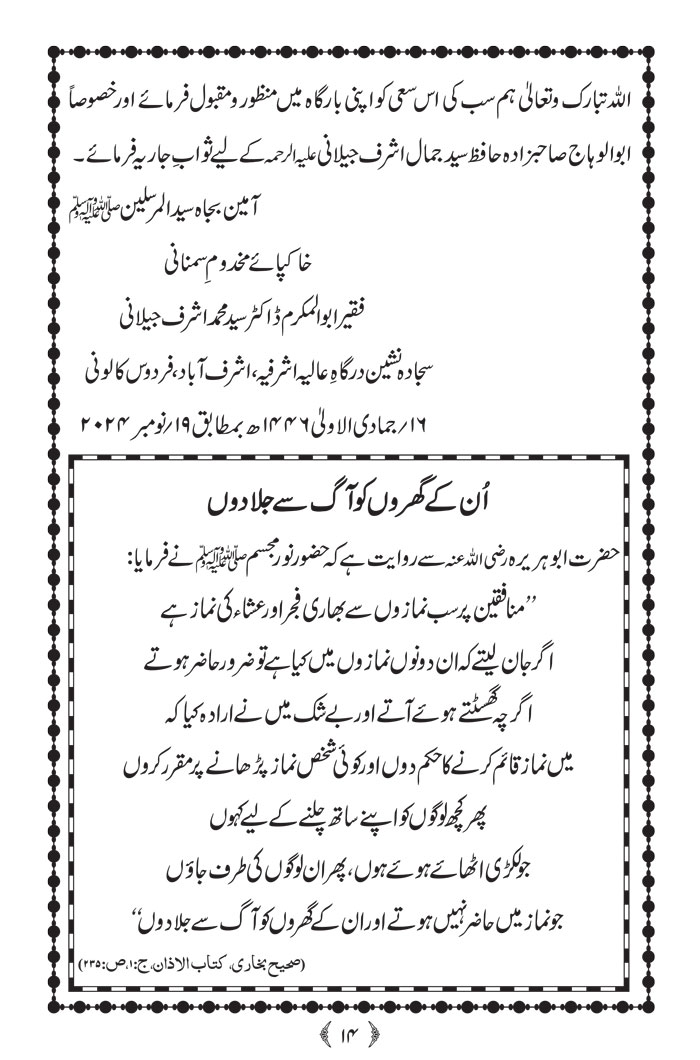 اللہ تبارک وتعالیٰ ہم سب کی اس سعی کو اپنی بارگاہ میں منظور و مقبول فرمائے اور خصوصاً
ابوالوہاج صاحبزادہ حافظ سید جمال اشرف جیلانی علیہ الرحمہ کے لیے ثوابِ جاریہ فرمائے۔
آمین بجاہ سید المرسلین ﷺ
خاکپائے مخدومِ سمنانی
فقیر ابوالمکرم ڈاکٹر سید محمد اشرف جیلانی
سجادہ نشین درگاہِ عالیہ اشرفیہ، اشرف آباد، فردوس کالونی
۱۶/جمادی الاولیٰ ۱۴۴۶ھ بمطابق ۱۹/نومبر ۲۰۲۴
اُن کے گھروں کو آگ سے جلا دوں
حضرت ابو ہریرہ رضی اللہ عنہ سے روایت ہے کہ حضور نور مجسم ﷺ نے فرمایا:
”منافقین پر سب نمازوں سے بھاری فجر اور عشاء کی نماز ہے
اگر جان لیتے کہ ان دونوں نمازوں میں کیا ہے تو ضرور حاضر ہوتے
اگرچہ گھسٹتے ہوئے آتے اور بے شک میں نے ارادہ کیا کہ
میں نماز قائم کرنے کا حکم دوں اور کوئی شخص نماز پڑھانے پر مقرر کروں
پھر کچھ لوگوں کو اپنے ساتھ چلنے کے لیے کہوں
جو لکڑی اٹھائے ہوئے ہوں، پھر ان لوگوں کی طرف جاؤں
جو نماز میں حاضر نہیں ہوتے اور ان کے گھروں کو آگ سے جلا دوں“
(صحیح بخاری، کتاب الاذان، ج:۱، ص:۲۳۵)
۱۴